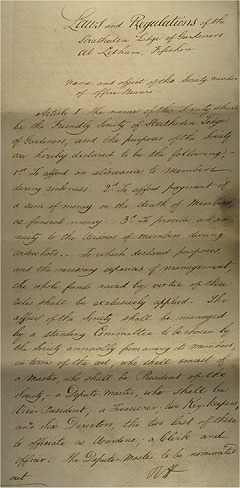 Laws and Regulations of the
Stratheden Lodge of Gardeners
at Letham, Fifeshire
Name and object of the Society number
of office Bearers.
Article 1 The name of the Society shall
be the Friendly Society of Stratheden Lodge
of Gardeners, and the purposes of the Society
are hereby declared to be the following:-
1st To afford an allowance to Members
during sickness. 2nd To afford payment of
a sum of money on the death of Members,
as funeral money. 3rd To provide an an-
nuity to the widows of members during
widowhood.- To which declared purposes
and the necessary expenses of management,
the whole funds raised by virtue of these
rules shall be exclusively applied. The
affairs of the Society shall be managed
by a standing Committee to be chosen by
the Society annually from among its members,
in terms of the act, who shall consist of
a Master, who shall be President of the
Society,- a Depute-Master, who shall be
Vice-President, a Treasurer- two Key-keepers,
and Six Directors, the two last of these
to officiate as Wardens, a Clerk and
officer. The Depute-Master to be nominated
out